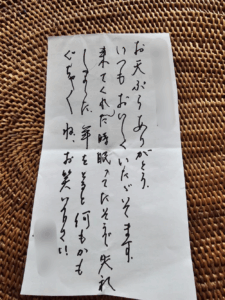 お天ぷらありがとう。
いつもおいしくいただいてます。
来てくれた時眠ってたそうで失礼
しました。年をとると何もかも
ぐちゃぐちゃ ね、お笑い下さい